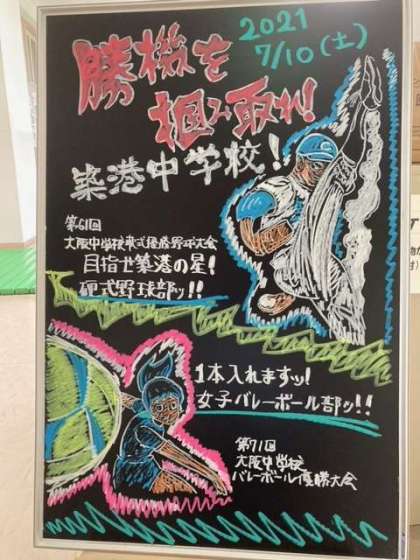 2021
7/10(土)
勝機を
掴み取れ!
築港中学校!
第61回
大阪中学校軟式優勝野球大会
目指せ築港の星!
硬式野球部ッ!!
1本入れますッ!
女子バレーボール部ッ!!
第71回
大阪中学校
バレーボール優勝大会